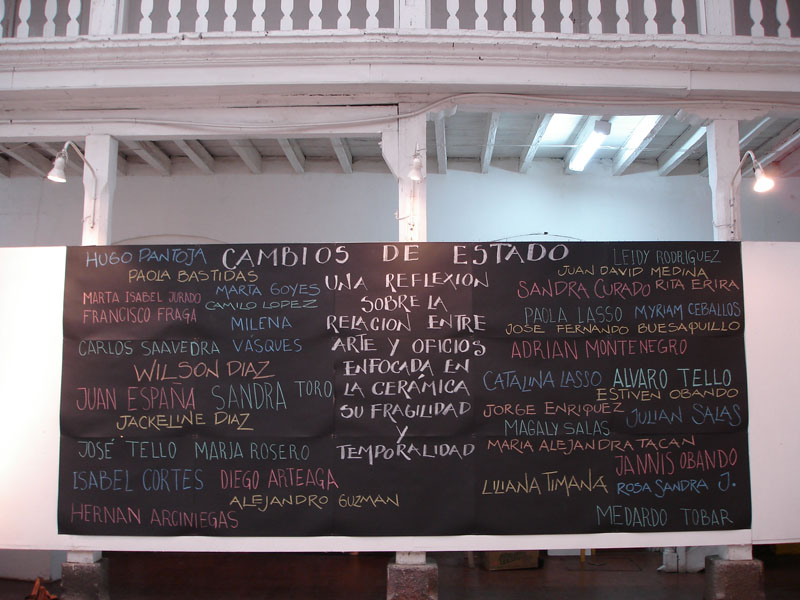 CAMBIOS DE ESTADO
UNA REFLEXION
SOBRE LA
RELACION ENTRE
ARTE Y OFICIOS
ENFOCADA EN
LA CERÁMICA
SU FRAGILIDAD
Y
TEMPORALIDAD
HUGO PANTOJA
PAOLA BASTIDAS
MARTA ISABEL JURADO
MARTA GOYES
FRANCISCO FRAGA
CAMILO LOPEZ
MILENA
VÁSQUES
CARLOS SAAVEDRA
WILSON DIAZ
JUAN ESPAÑA
SANDRA TORO
JACKELINE DIAZ
JOSÉ TELLO
MARIA ROSERO
ISABEL CORTES
DIEGO ARTEAGA
ALEJANDRO GUZMAN
HERNAN ARCINIEGAS
LEIDY RODRIGUEZ
JUAN DAVID MEDINA
SANDRA CURADO
RITA ERIRA
PAOLA LASSO
MYRIAM CEBALLOS
JOSE FERNANDO BUESAQUILLO
ADRIAN MONTENEGRO
CATALINA LASSO
ALVARO TELLO
ESTIVEN OBANDO
JORGE ENRIQUEZ
JULIAN SALAS
MAGALY SALAS
MARIA ALEJANDRA TACAN
JANNIS OBANDO
LILIANA TIMANA
ROSA SANDRA J.
MEDARDO TOBAR